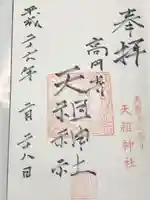 奉拝
高円寺
天祖神社
天祖神社
平成二十六年 二月二十八日